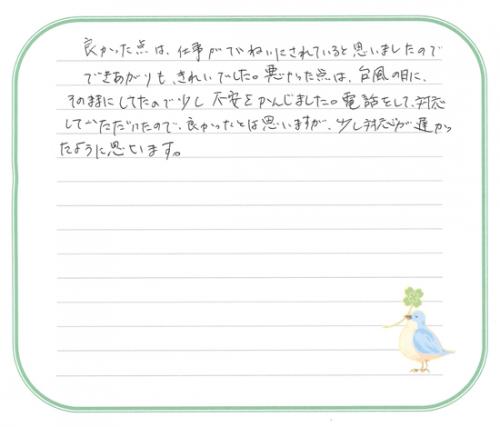 良かった点は、仕事がていねいにされていると思いましたので
できあがりもきれいでした。悪かった点は、台風の日に、
そのままにしてたので少し不安をかんじました。電話をして、対応
していただいたので、良かったとは思いますが、少し対応が遅かっ
たように思います。